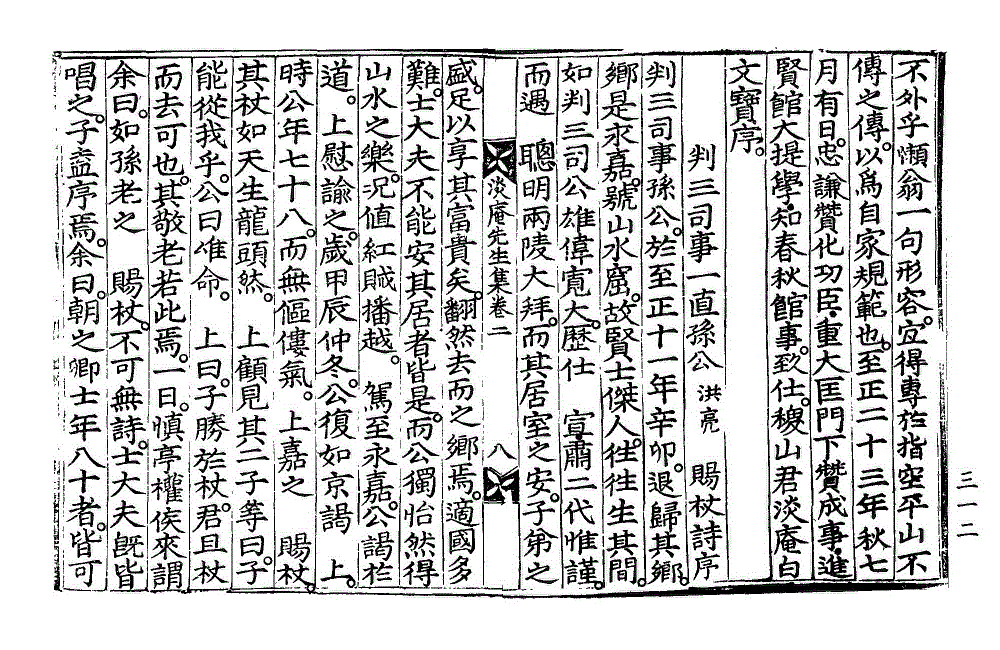 不外乎懶翁一句形容。宜得專於指空平山不
傳之傳。以爲自家規範也。至正二十三年秋七
月有日。忠謙贊化功臣。重大匡門下贊成事。進
賢館大提學。知春秋館事。致仕。稷山君淡庵白
文寶序。
判三司事一直孫公 洪亮 賜杖詩序
判三司事孫公。於至正十一年辛卯。退歸其鄉。
鄉是永嘉。號山水窟。故賢士傑人。往往生其間。
如判三司公雄偉寬大。歷仕 宣肅二代惟謹。
而遇 聰明兩陵大拜。而其居室之安。子弟之
淡庵先生集卷二 八
盛。足以享其富貴矣。翻然去而之鄉焉。適國多
難。士大夫不能安其居者皆是。而公獨怡然得
山水之樂。況值紅賊播越。 駕至永嘉。公謁於
道。上慰諭之。歲甲辰仲冬。公復如京謁 上。
時公年七十八。而無傴僂氣。上嘉之 賜杖。
其杖如天生龍頭然。 上顧見其二子等曰。子
能從我乎。公曰唯命。 上曰。子勝於杖。君且杖
而去可也。其敬老若此焉。一日。愼亭權侯來謂
余曰。如孫老之 賜杖。不可無詩。士大夫旣皆
唱之。子盍序焉。余曰。朝之卿士年八十者。皆可
三一二